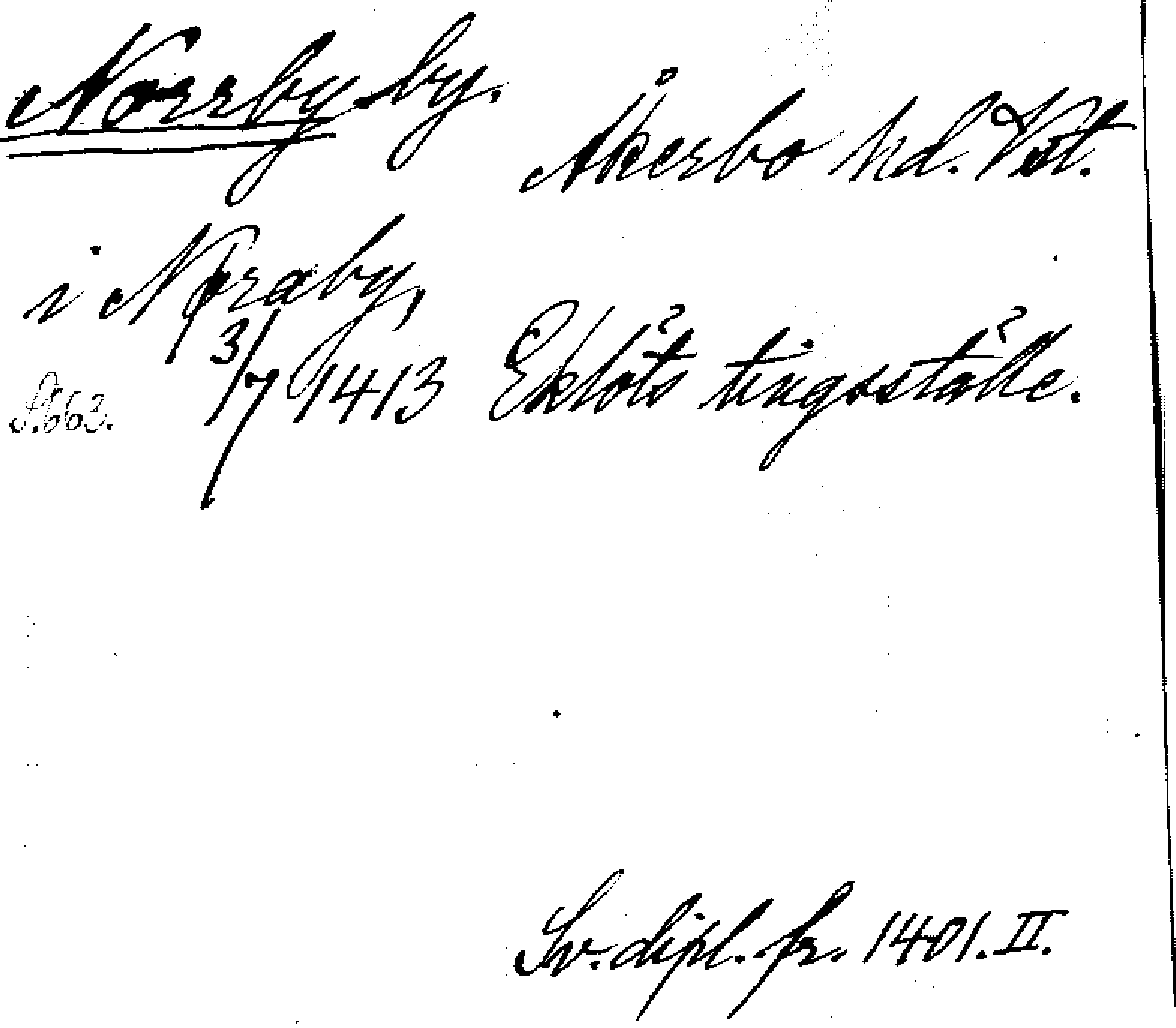 Norrby by.
Åkerbo hd. Vst.
i Noraby,
3/7 1413 Eklöts tingsställe.
S. 663.
Sv. dipl. fr. 1401. II.